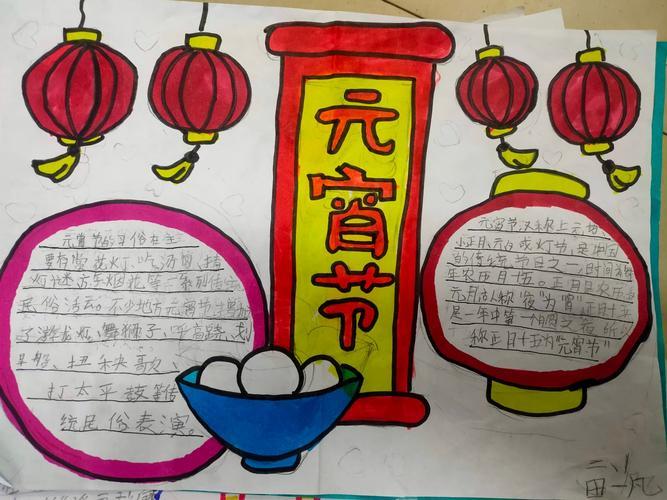 元宵节
元宵节的习俗在主
要有赏花灯、吃汤圆、猜
灯谜、放烟花等一系列传统
民俗活动。不少地方元宵节增加
了游龙灯、舞狮子、踩高跷、
扭秧歌
打太平鼓等传
统民俗表演。
元宵节,又称上元节、
小正月、元夕或灯节,是中国
的传统节日之一,时间为每
年农历正月十五。正月是农历的
元月,古人称"夜"为"宵",正月十五
是一年中第一个月圆之夜,所以
称正月十五为"元宵节"